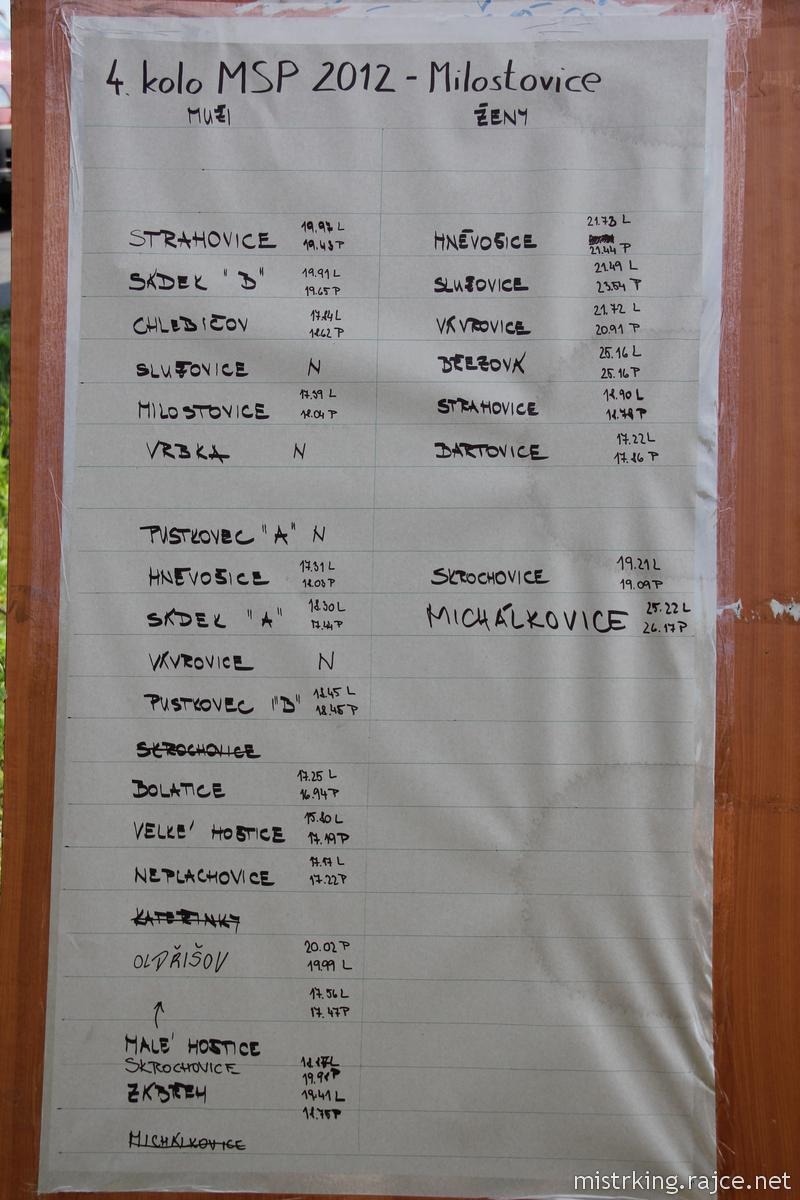 4. kolo MSP 2012 - Milostovice
MUŽI ŽENY
STRAHOVICE 19.97 L
19.43 P
SÁDEK "B" 19.91 L
19.65 P
CHLEBIČOV
SLUŽOVICE N
MILOSTOVICE 17.39 L
18.04 P
VRBKA N
PUSTKOVEC "A" N
HNĚVOŠICE 17.31 L
18.03 P
SÁDEK "A" 18.30 L
VÁVROVICE N
PUSTKOVEC "B" 18.45 L
18.45 P
SKROCHOVICE
BOLATICE 17.25 L
16.94 P
VELKÉ HOŠTICE 15.80 L
17.19 P
NEPLACHOVICE 17.17 L
17.22 P
KATEŘINKY
OLDŘIŠOV 20.02 P
19.99 L
17.56 L
17.47 P
MALÉ HOŠTICE
SKROCHOVICE
ZÁBŘEH 19.41 L
18.75 P
MICHÁLKOVICE
HNĚVOŠICE 21.73 L
21.44 P
SLUŽOVICE 21.49 L
23.54 P
VÁVROVICE 21.72 L
20.91 P
BŘEZOVÁ 25.16 L
25.16 P
STRAHOVICE 18.90 L
18.78 P
BARTOVICE 17.22 L
17.26 P
SKROCHOVICE 19.21 L
19.09 P
MICHÁLKOVICE 25.22 L
26.17 P
mistrking.rajce.net